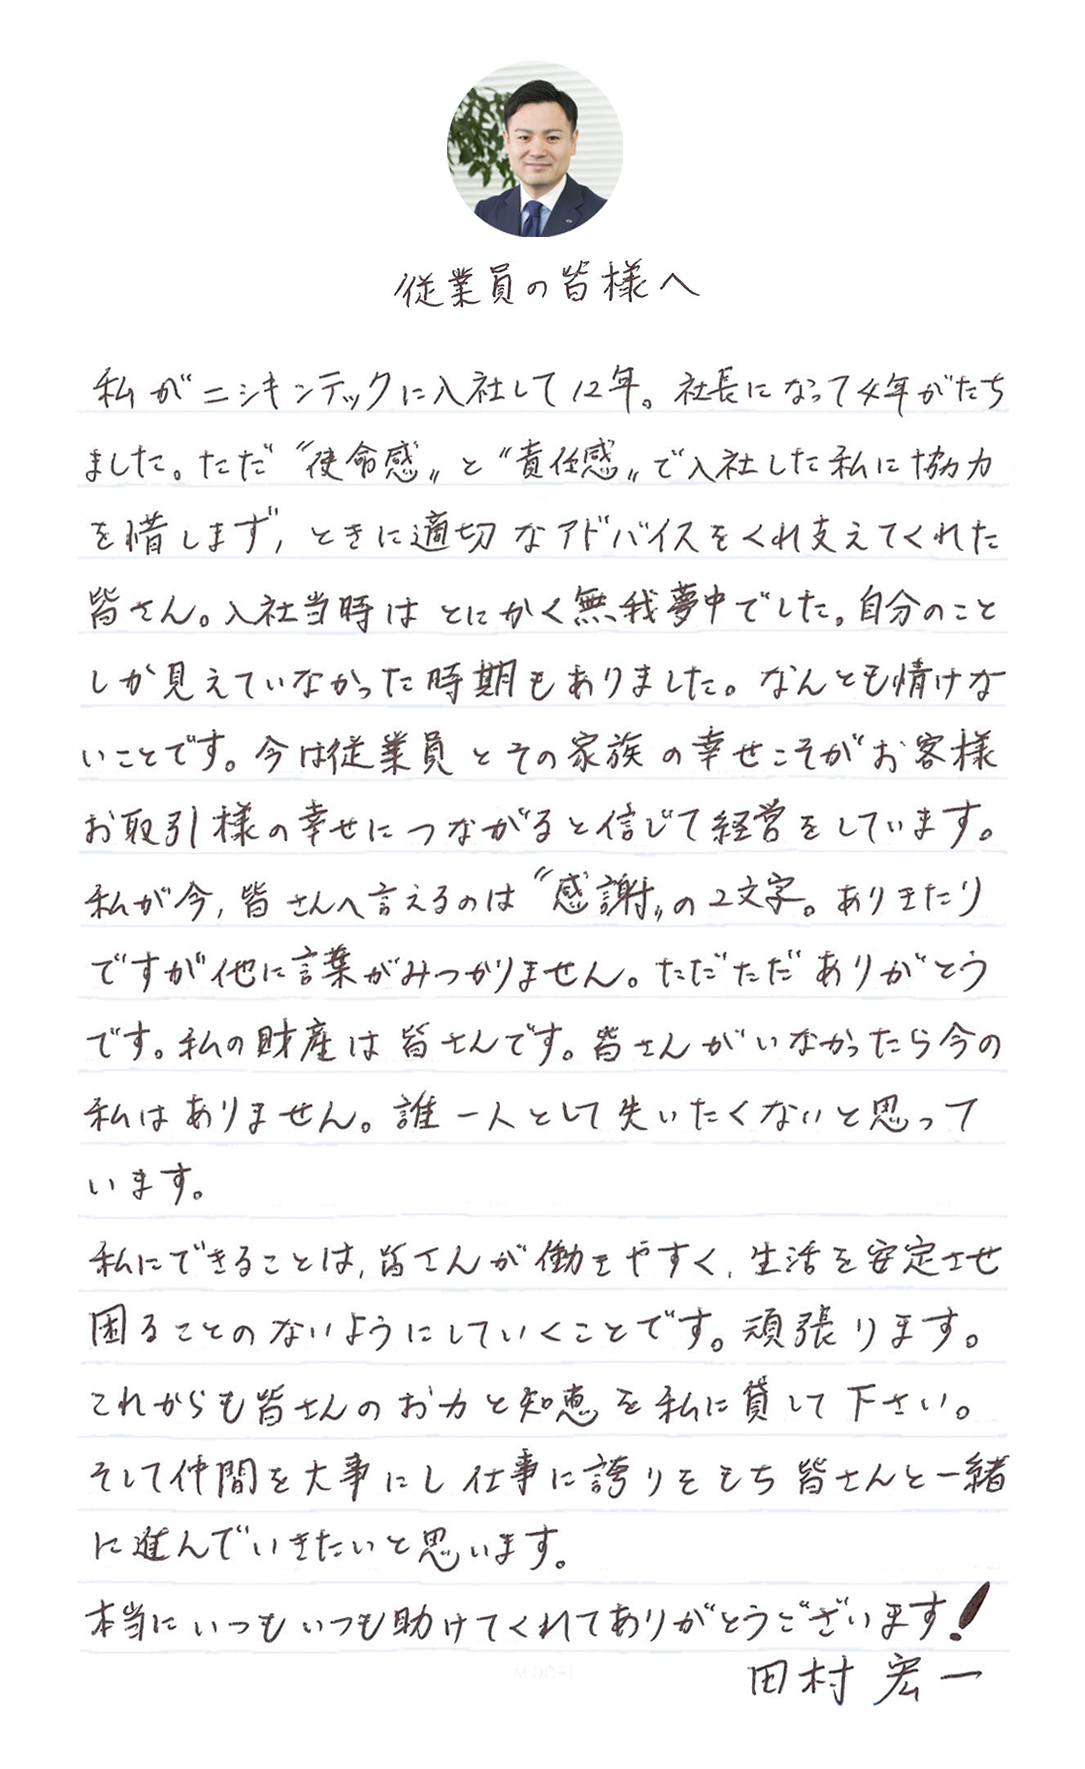 従業員の皆様へ
私がニシキンテックに入社して12年。社長になって4年がたち
ました。ただ〝使命感〟と〝責任感〟で入社した私に協力
を惜しまず,ときに適切なアドバイスをくれ支えてくれた
皆さん。入社当時はとにかく無我夢中でした。自分のこと
しか見えていなかった時期もありました。なんとも情けな
いことです。今は従業員とその家族の幸せこそがお客様
お取引様の幸せにつながると信じて経営をしています。
私が今,皆さんへ言えるのは〝感謝〟の2文字。ありきたり
ですが他に言葉がみつかりません。ただただありがとう
です。私の財産は皆さんです。皆さんがいなかったら今の
私はありません。誰一人として失いたくないと思って
います。
私にできることは,皆さんが働きやすく,生活を安定させ
困ることのないようにしていくことです。頑張ります。
これからも皆さんのお力と知恵を私に貸して下さい。
そして仲間を大事にし仕事に誇りをもち皆さんと一緒
に進んでいきたいと思います。
本当にいつもいつも助けてくれてありがとうございます!
田村宏一